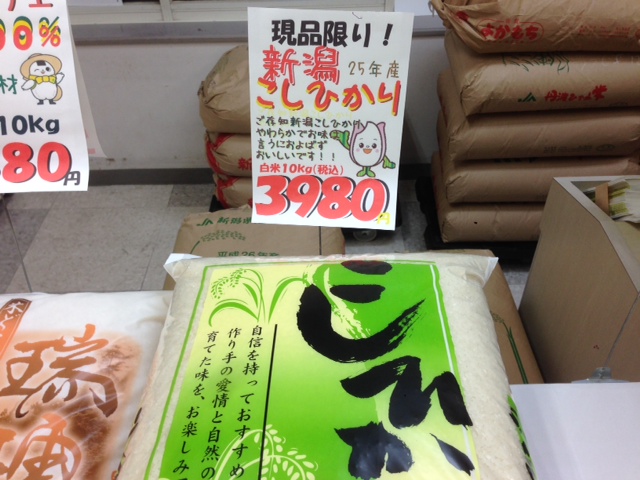 00%
材
10Kg
80円
現品限り！
新潟 25年産
こしひかり
ご存知新潟こしひかり
やわらかでお味は
言うにおよばず
おいしいです！！
白米10Kg(税込)
3980円
JA 新潟
平成26年
こしひか
自信を持っておすすめ
作り手の愛情と自然の
育てた味を、お楽しみ
瑞穂
JA